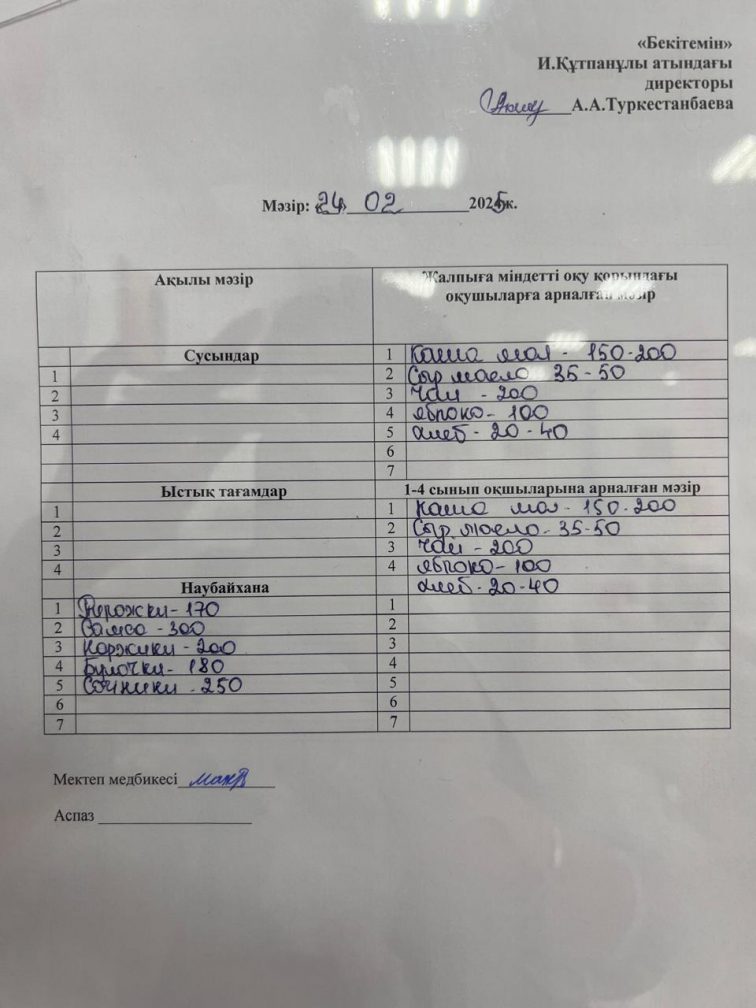 «Бекітемін»
И.Құтпанұлы атындағы
директоры
А.А.Туркестанбаева
Мәзір: «24» 02 2025ж.
Ақылы мәзір
Жалпыға міндетті оқу қорындағы
оқушыларға арналған мәзір
Сусындар
1
2
3
4
1 Каша мол - 150-200
2 Сыр масло 35-50
3 Чай - 200
4 яблоко - 100
5 хлеб - 20-40
6
7
Ыстық тағамдар
1
2
3
4
1-4 сынып оқшыларына арналған мәзір
1 Каша мол - 150-200
2 Сыр масло - 35-50
3 Чай - 200
4 яблоко - 100
хлеб - 20-40
Наубайхана
1 Пирожки - 170
2 Самса - 300
3 Коржики - 200
4 Булочки - 180
5 Сочники - 250
6
7
1
2
3
4
5
6
7
Мектеп медбикесі
Аспаз